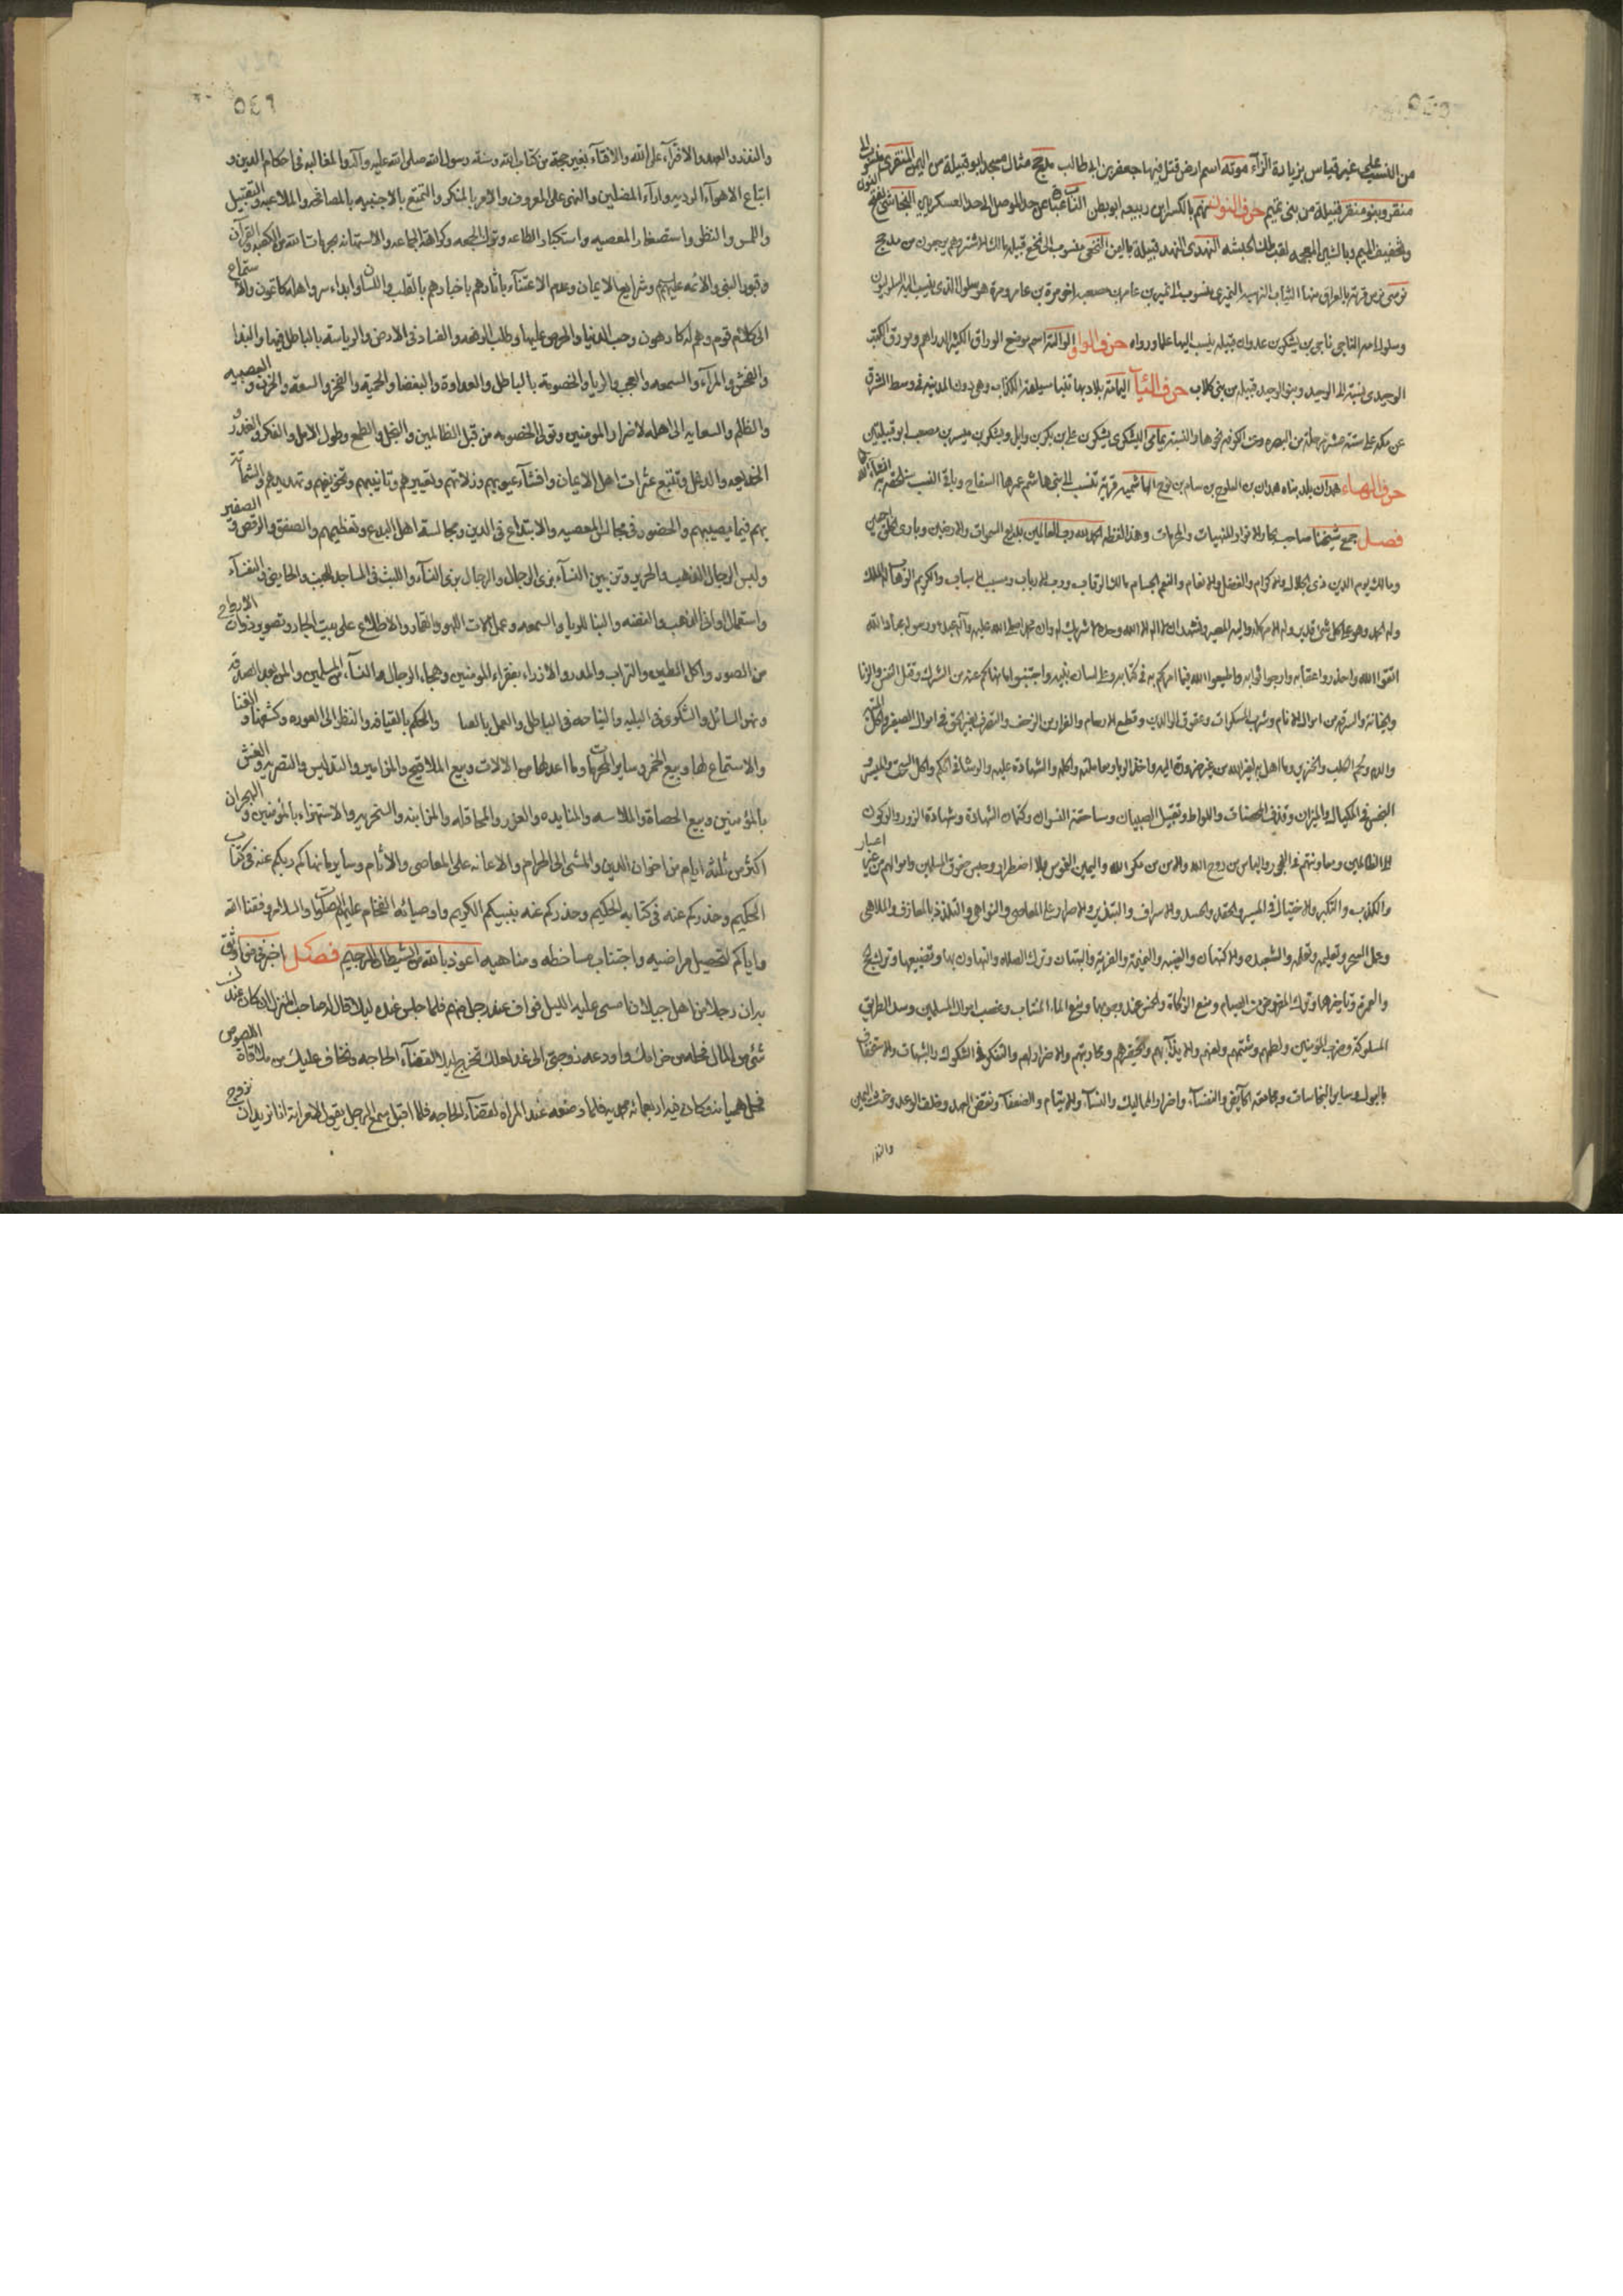 من النسب على غير قياس بزيادة الزاء موته اسم ارض قتل فيها جعفر بن ابى طالب مذحج مثال مسجد ابو قبيلة من اليمن المنقرى منسوب الى
منقر وبنو منقر قبيلة من بنى تميم حرف النون بالكسر ابن ربيعه ابو بطن النجاشى بفتح النون
وتخفيف الجيم وبالشين المعجمه لقب ملك الحبشه النهدى النهد قبيلة باليمن النخعى منسوب الى نخع قبيله مالك الاشتر وهم من مذحج
نرسى نرس قرية بالعراق منها الثياب النرسيه النميرى منسوب الى نمير بن عامر بن صعصعه اخو مرة بن عامر ومرة هو سلول الذى ينسب اليه السلوليون
وسلول امه الناجى ناجى بن يشكر بن عدوان قبيله ينسب اليها علما ورواه حرف الواو الوراق اسم موضع الوراق الكثير الدراهم ومورق الكتب
الوحيدى نسبة الى الوحيد وبنو الوحيد قبيله من بنى كلاب حرف الياء اليمامة بلاد بها تنبا مسيلمة الكذاب وهى دون المدينه فى وسط الشرق
عن مكه على ستة عشر مرحلة من البصره وعن الكوفه نحوها والنسبة يمامى اليشكرى يشكر بن على بن بكر بن وايل ويشكر بن ميسر بن مصعب ابو قبيلتين
حرف الهاء همدان بلد بناه همدان بن الفلوج بن سام بن نوح الهاشميه قرية تنسب الى بنى هاشم عمرها السفاح وباقى النسب سنلحقه به انشاء الله
فصل جمع شيخنا صاحب بحار الانوار المنهيات والمحرمات وهذا لفظه الحمد لله رب العالمين بديع السموات والارضين وبارئ الخلق اجمعين
ومالك يوم الدين ذى الجلال والاكرام والفضل والانعام والنعم الجسام مالك الرقاب ورب الارباب ومسبب الاسباب والكريم الوهاب له الملك
وله الحمد وهو على كل شئ قدير وله الامر كله واليه المصير ونشهد ان لا اله الا الله وحده لا شريك له وان محمدا صلى الله عليه وآله عبده ورسوله عباد الله
اتقوا الله واحذروا عقابه وارجوا ثوابه واطيعوا الله فيما امركم به فى كتابه وعلى لسان نبيه واجتنبوا ما نهاكم عنه من الشرك وقتل النفس والزنا
والخيانة والسرقه من اموال الانام وشرب المسكرات وعقوق الوالدين وقطع الارحام والفرار من الزحف والتصرف بغير الحق فى اموال الصغير واكل الميته
والدم ولحم الكلب والخنزير وما اهل به لغير الله من غير ضرورة اليه واخذ الربا ومعاملته واكله والشهادة عليه والرشا فى الحكم واكل السحت والميسر
البخس فى المكيال والميزان وقذف المحصنات واللواط وتقبيل الصبيان ومساحقة النسوان وكتمان الشهادة وشهادة الزور والركون
الى الظالمين ومعاونتهم فى الفجور والياس من روح الله والامن من مكر الله واليمين الغموس بلا اضطرار وحبس حقوق المسلمين واموالهم من غير اعسار
والكذب والتكبر والاختيال والميسر والحقد والحسد والاسراف والتبذير والاصرار على المعاصى والنواهى والتلذذ بالمعازف والملاهى
وعمل السحر وتعليمه وتعلمه والشعبده والكتمان والغيبه والنميمة والفرية والبهتان وترك الصلاه والتهاون بها وتضييعها وترك الحج
والعمرة وتاخيرها وترك المفروض من الصيام ومنع الزكاة والخمس عند وجوبها ومنع الماء المنتاب وغصب اموال المسلمين وسد الطريق
المسلوكه وضرب المؤمنين ولطمهم وشتمهم ولعنهم والايذاء بهم وتحقيرهم ومحاربتهم والاضرار بهم والتفكر فى الشكوك والشبهات والاستخفاف
بالبول وسائر النجاسات ومجامعة الحايض والنفساء واضرار المماليك والنساء والايتام والضعفاء ونقض العهد وخلف الوعد وحنث اليمين
والنذر
٥٤٦
والنذر والعهد والافتراء على الله والافتاء بغير حجة من كتاب الله وسنة رسول الله صلى الله عليه وآله والمغالبه فى احكام الدين و
اتباع الاهواء الرديه واراء المضلين والنهى عن المعروف والامر بالمنكر والتمتع بالاجنبيه بالمصافحه والملاعبه والتقبيل
واللمس والنظر واستصغار المعصيه واستكبار الطاعه وترك الجمعه وكراهة الجماعه والاستهانه بحرمات الله من الكعبه والقرآن
وقبور النبى والائمه عليهم وشرايع الايمان وعدم الاعتناء باثارهم باخبارهم بالقلب واللسان وابداء سر واهله كاتمون والاستماع
الى كلام قوم وهم له كارهون وحب الدنيا والحرص عليها وطلب الرفعه والفساد فى الارض والرياسة بالباطل فيها والبذا
والفحش والمرآء والسمعه والعجب والريا والخصومة بالباطل والعداوة والبغضا والحمية والفخر والسعة والحزن والعصبيه
والظلم والسعايه الى اهله لاضرار المومنين وتولى الخصومه من قبل الظالمين والبخل والطمع وطول الامل والفكر والغدر و
الخديعه والدغل وتتبع عثرات اهل الايمان وافشاء عيوبهم وزلاتهم وتعييرهم وتانيبهم وتخويفهم وتهديدهم والشماتة
بهم فيما يصيبهم والحضور فى مجالس المعصيه والابتداع فى الدين ومجالسة اهل البدع وتعظيمهم والصفق والرقص والصفير
ولبس الرجال الذهب والحرير وتزيين النساء بزى الرجال والرجال بزى النساء واللبث فى المساجد للجنب والحايض والنفساء
واستعمال اوانى الذهب والفضه والبنا للريا والسمعه وعمل آلات اللهو والقمار والاطلاع على بيت الجار وتصوير ذوات الارواح
من الصور واكل الطين والتراب والمدر والازراء بفقراء المومنين وهجاء الرجال والنساء من المسلمين والمن بعد الصدقة
ونهر السائل والشكوى فى البليه والنياحه فى الباطل والعمل بالعصا والحكم بالقيافه والنظر الى العوره وكشفها والغنا
والاستماع لها وبيع الخمر وساير المحرمات وما اعد لها من الالات وبيع الملاقيح والمزامير والتدليس والتصريه والغش
بالمؤمنين وبيع الحصاة والملامسه والمنابذه والغرر والمحاقله والمزابنه والسخريه والاستهزاء بالمؤمنين والهجران
اكثر من ثلثه ايام من اخوان الدين والمشى الى الحرام والاعانه على المعاصى والآثام وساير ما نهاكم ربكم عنه فى كتابه
الحكيم وحذركم عنه فى كتابه الحكيم وحذركم عنه نبيكم الكريم واوصيائه الفخام عليهم الصلوة والسلام وفقنا الله
واياكم لتحصيل مراضيه واجتناب مساخطه ومناهيه اعوذ بالله من الشيطان الرجيم فصل اخبرنى من اثق
به ان رجلا من اهل جبيلان امسى عليه الليل فوافى عند رجل منهم فلما جلس عنده ليلا قال له صاحب المنزل ان كان عندك
شئ من المال فحله من حزامك واودعه زوجتى الى غد لعلك تخرج ليلا لقضاء الحاجه ونخاف عليك من ملاقاة اللصوص
فحل هميانه وكان فيه اربعمائه محمديه فلما وضعه عند المراه لقضاء الحاجه فلما اقبل سمع الرجل يقول لامراته انا نريد ان نزوج